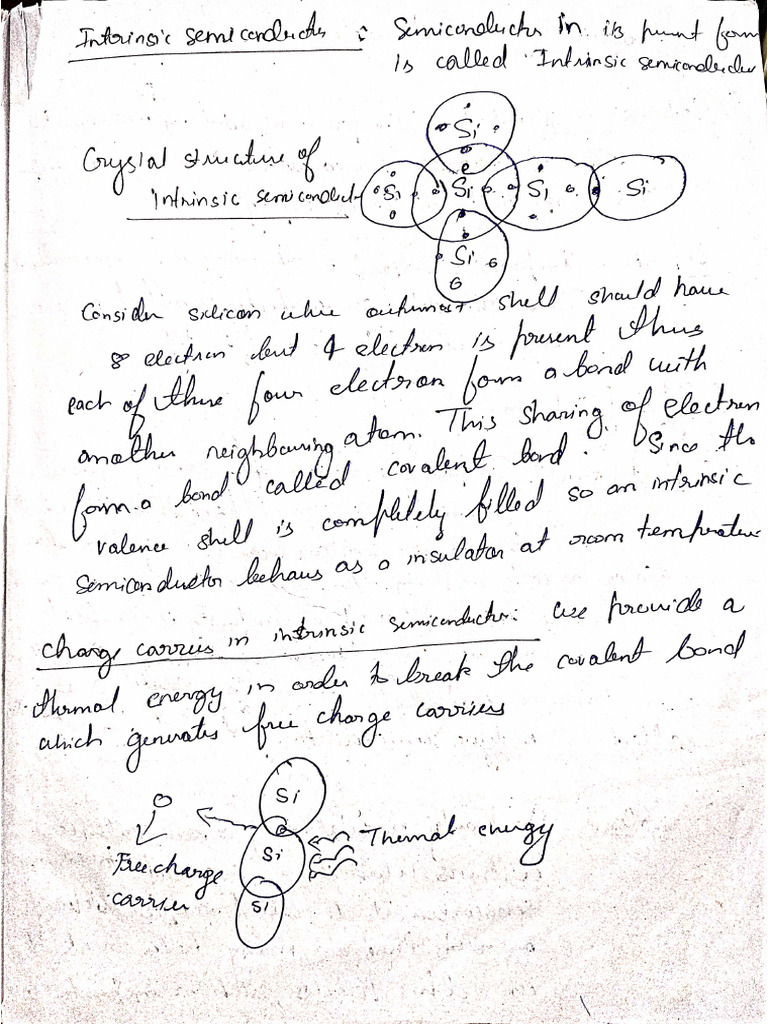 Intrinsic semiconductor : Semiconductor in its purest form
is called Intrinsic semiconductor
Crystal structure of
Intrinsic semiconductor
Si
Si Si Si Si
Si
Consider silicon whose outermost shell should have
8 electron but 4 electron is present thus
each of these four electron form a bond with
another neighbouring atom. This sharing of electron
form a bond called covalent bond. Since the
valence shell is completely filled so an intrinsic
semiconductor behaves as a insulator at room temperature
Charge carriers in intrinsic semiconductor: We provide a
thermal energy in order to break the covalent bond
which generates free charge carriers
Si
Si
Si
Thermal energy
Free charge
carrier